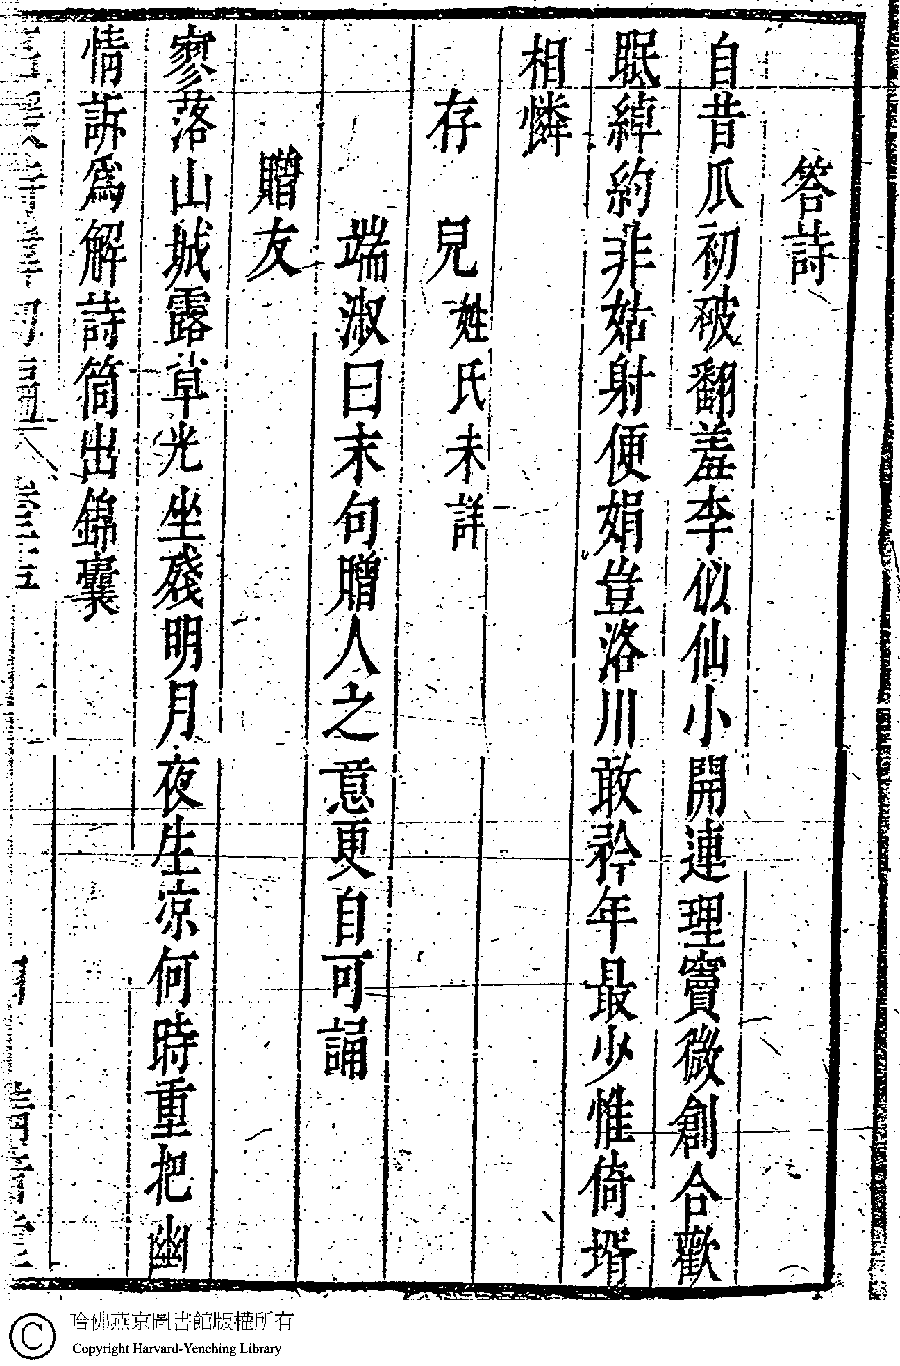 答詩
自昔瓜初破翻羞李似仙小開連理竇微創合歡
眠綽約非姑射便娟豈洛川敢矜年最少惟倚壻
相憐
存兒姓氏未詳
端淑曰末句贈人之意更自可誦
贈友
寥落山城露草光坐殘明月夜生凉何時重把幽
情訴爲解詩筒出錦囊
哈佛燕京圖書館版權所有
Copyright Harvard-Yenching Library